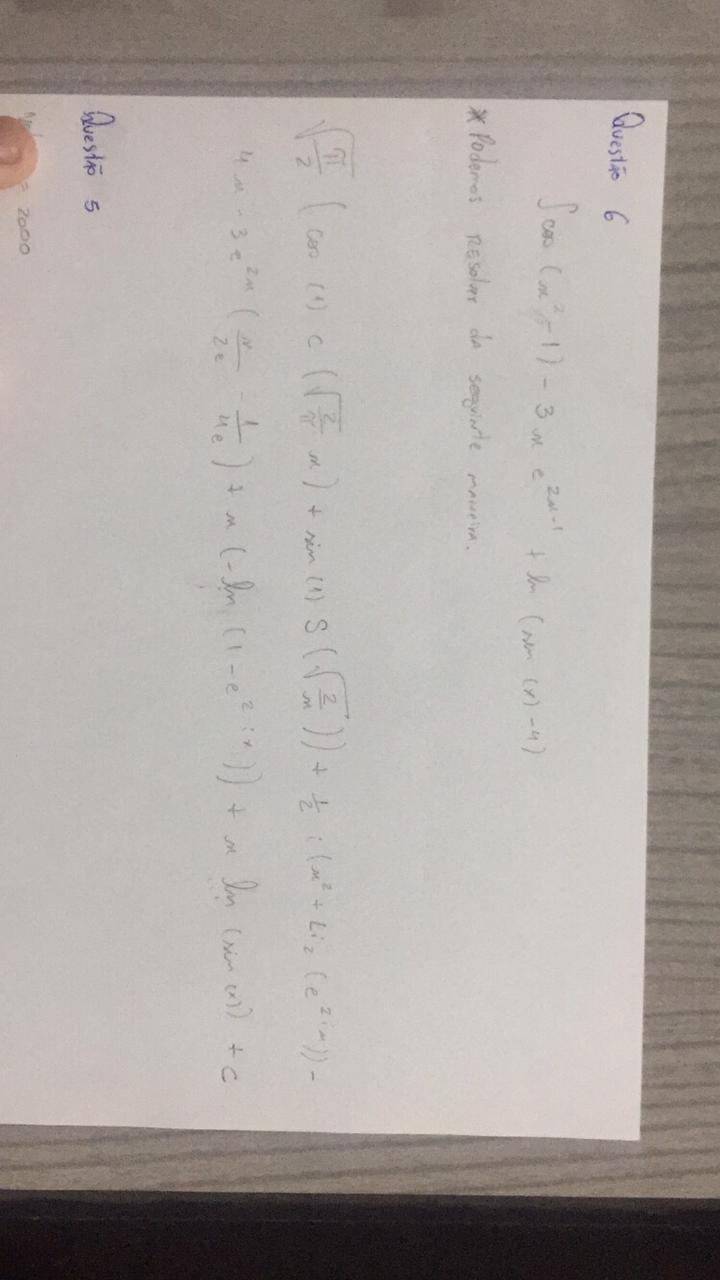 Questão 6
∫ cos (x² - 1) - 3x e^{2x-1} + ln (sen (x) - 4)
* Podemos RESolver da seguinte maneira.
√(π/2) ( cos (1) C (√(2/π) x) + sin (1) S (√(2/x))) + 1/2 i (x² + Li₂ (e^{2ix})) -
4x - 3e^{2x} (x/2e - 1/4e) + x (-ln (1 - e^{2ix})) + x ln (sin (x)) + c
Questão 5
= 2000